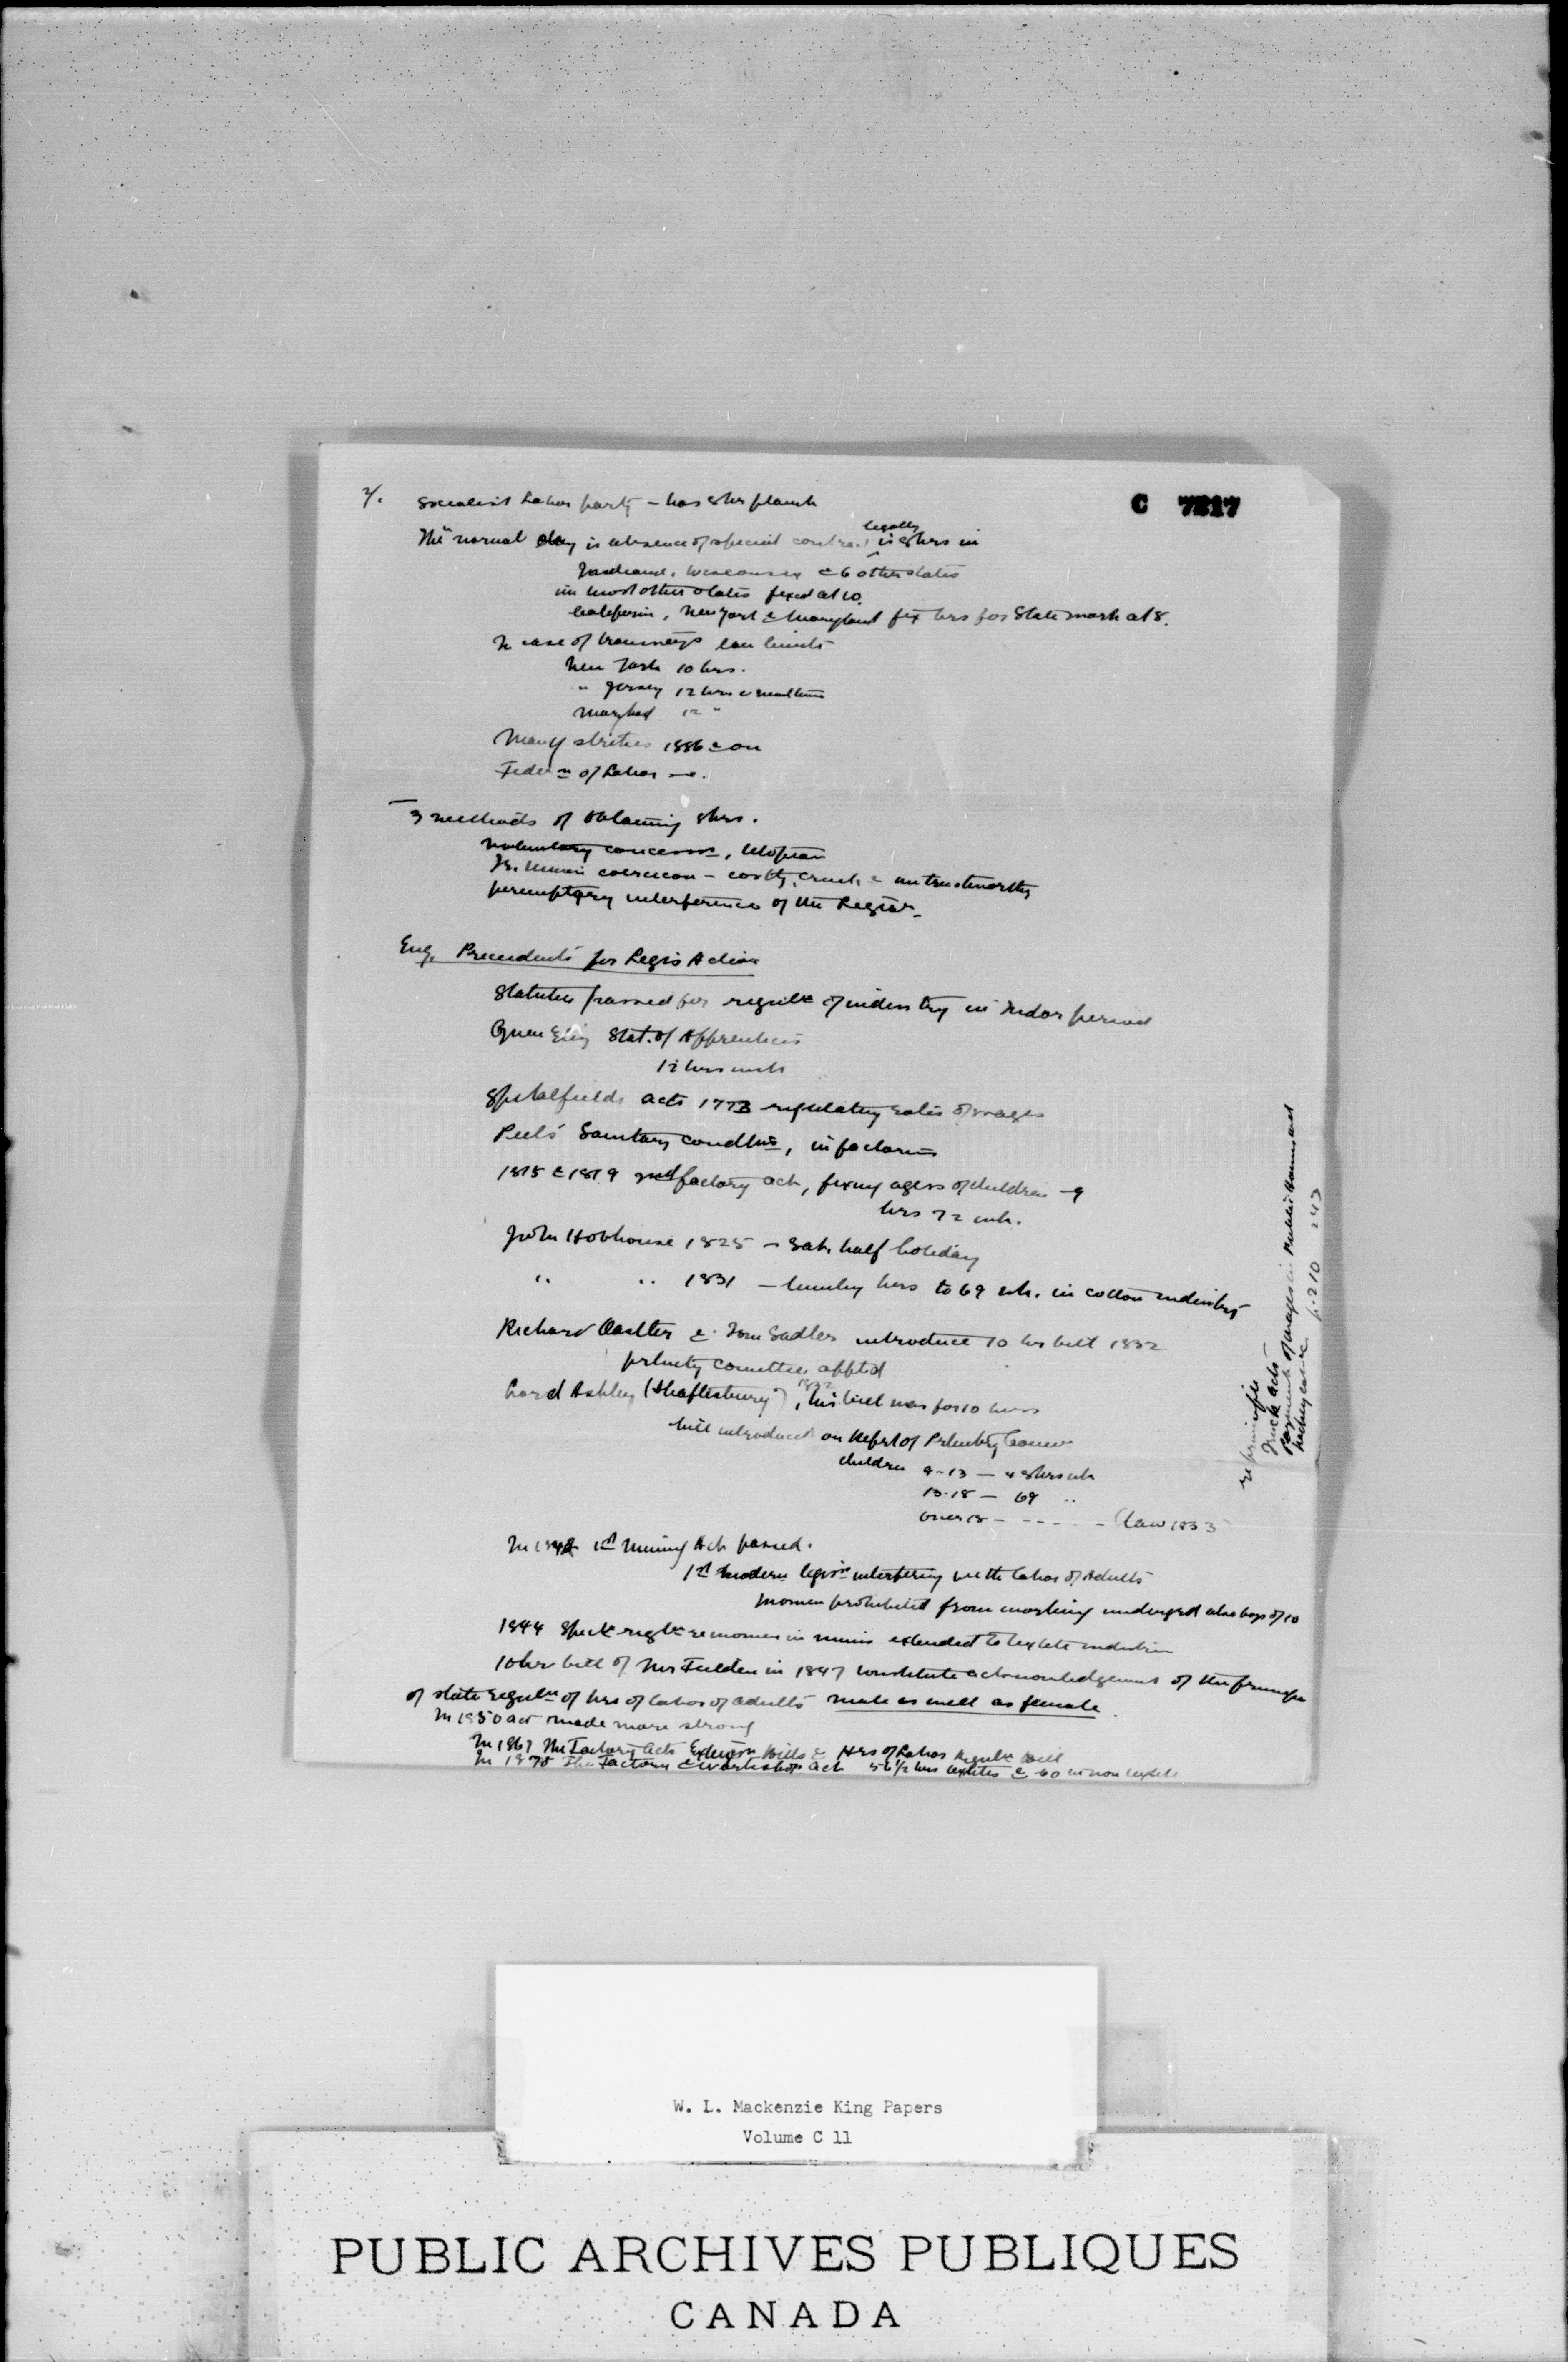 2/. Socialist Labor party – has 8 hr plank
C 7217
legally
The "normal day in absence of special contract is 8 hrs in
Indiana, Wisconsin & 6 other states
in most other states fixed at 10.
California, New York & Maryland fix hrs for State work at 8.
In case of tramways law limits
New York 10 hrs.
" Jersey 12 hrs &
Maryland 12 "
Many strikes 1886 & on
Feder'n of Labor
3 methods of obtaining 8 hrs.
voluntary concess'n, Utopian
Tr. Union coercion – costly, cruel & untrustworthy
peremptory interference of the Legis'r.
Eng. Precedents for Legis Action
Statutes passed for regul'n of industry in Tudor period
Queen Eliz Stat. of Apprentices
12 hrs
Spitalfields acts 1773 regulating rates of wages
Peel's Sanitary condt'ns, in factories
1815 & 1819 factory act, fixing ages of children – 9
hrs 72 wk.
John Hobhouse 1825 – Sat. half holiday
" " 1831 – hrs to 69 wk. in cotton industry
Richard Oastler & Sadler introduce 10 hr bill 1832
committee appt'd
Lord Ashley (Shaftesbury), 1832 his bill was for 10 hours
bill introduced on Rep't of
children 9-13 – 48 hrs wk
13-18 – 69 "
over 18 – - - - - – (law 1833
In 1842 1st Mining Act passed.
1st modern legis'n interfering with labor of Adults
women prohibited from working underg'd also boys of 10
1844 regl'n re women in mines extended to textile industries
10 hr bill of Mr Fielden in 1847 constitute acknowledgement of the principle
of state regul'n of hrs of labor of adults male as well as female.
In 1850 act made more strong
In 1867 The Factory Acts Extension Bills & Hrs of Labor Regul'n Bill
In 1878 The Factory & Workshops Act 56 1/2 hrs textiles & 60 in non textile
re
Truck acts
Payments of wages in Public Houses act
p. 210 243
W. L. Mackenzie King Papers
Volume C 11
PUBLIC ARCHIVES PUBLIQUES
CANADA